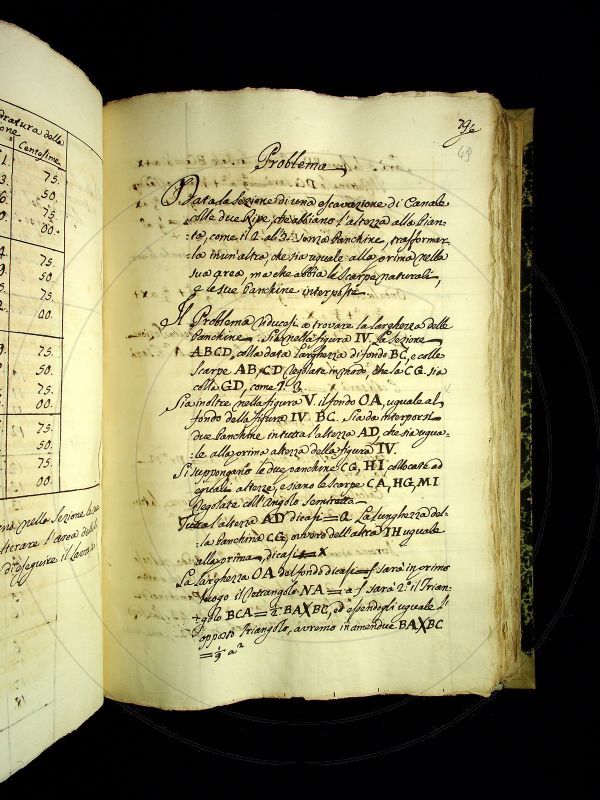 dratura della
ione
Centesime
1.
75.
3
50.
6
75.
0
00.
4
75.
9
50.
5
75.
2
00.
9.
75.
3.
50.
7.
75.
00.
75.
50.
75.
00.
nella Sezione
alterare l'area
d'eseguire il lavoro
79
49
Problema
Data la Sezione di una escavazione di Canale
colle due Rive, che abbiano l'altezza alla Pian-
ta, come il 2. al 3. senza banchine, trasformar-
la in un'altra che sia uguale alla prima nella
sua area, ma che abbia le Scarpe naturali,
e le sue banchine interposte.
Il Problema riducesi a trovare la larghezza delle
banchine. Sia nella figura IV. la Sezione
ABCD, colla data larghezza di fondo BC, e colle
Scarpe AB, CD regolate in modo, che la CG. sia
colla GD, come 2. 3.
Sia inoltre nella figura V. il fondo OA, uguale al
fondo della figura IV. BC. Sia da interporsi
due banchine in tutta l'altezza AD, che sia ugua-
le alla prima altezza della figura IV.
Si suppongano le due banchine CG, HI collocate ad
eguali altezze, e siano le Scarpe CA, HG, MI
regolate coll'Angolo Semiretto.
Tutta l'altezza AD dicasi = a. La lunghezza del-
la banchina CG, ovvero dell'altra IH uguale
alla prima, dicasi = x
La larghezza OA del fondo dicasi = f sarà in primo
luogo il Rettangolo NA = a f. sarà 2.° il Trian-
golo BCA = ½ BAXBC, ed essendogli uguale l'
opposto triangolo, avremo in amendue BAXBC
= 1/9 a²